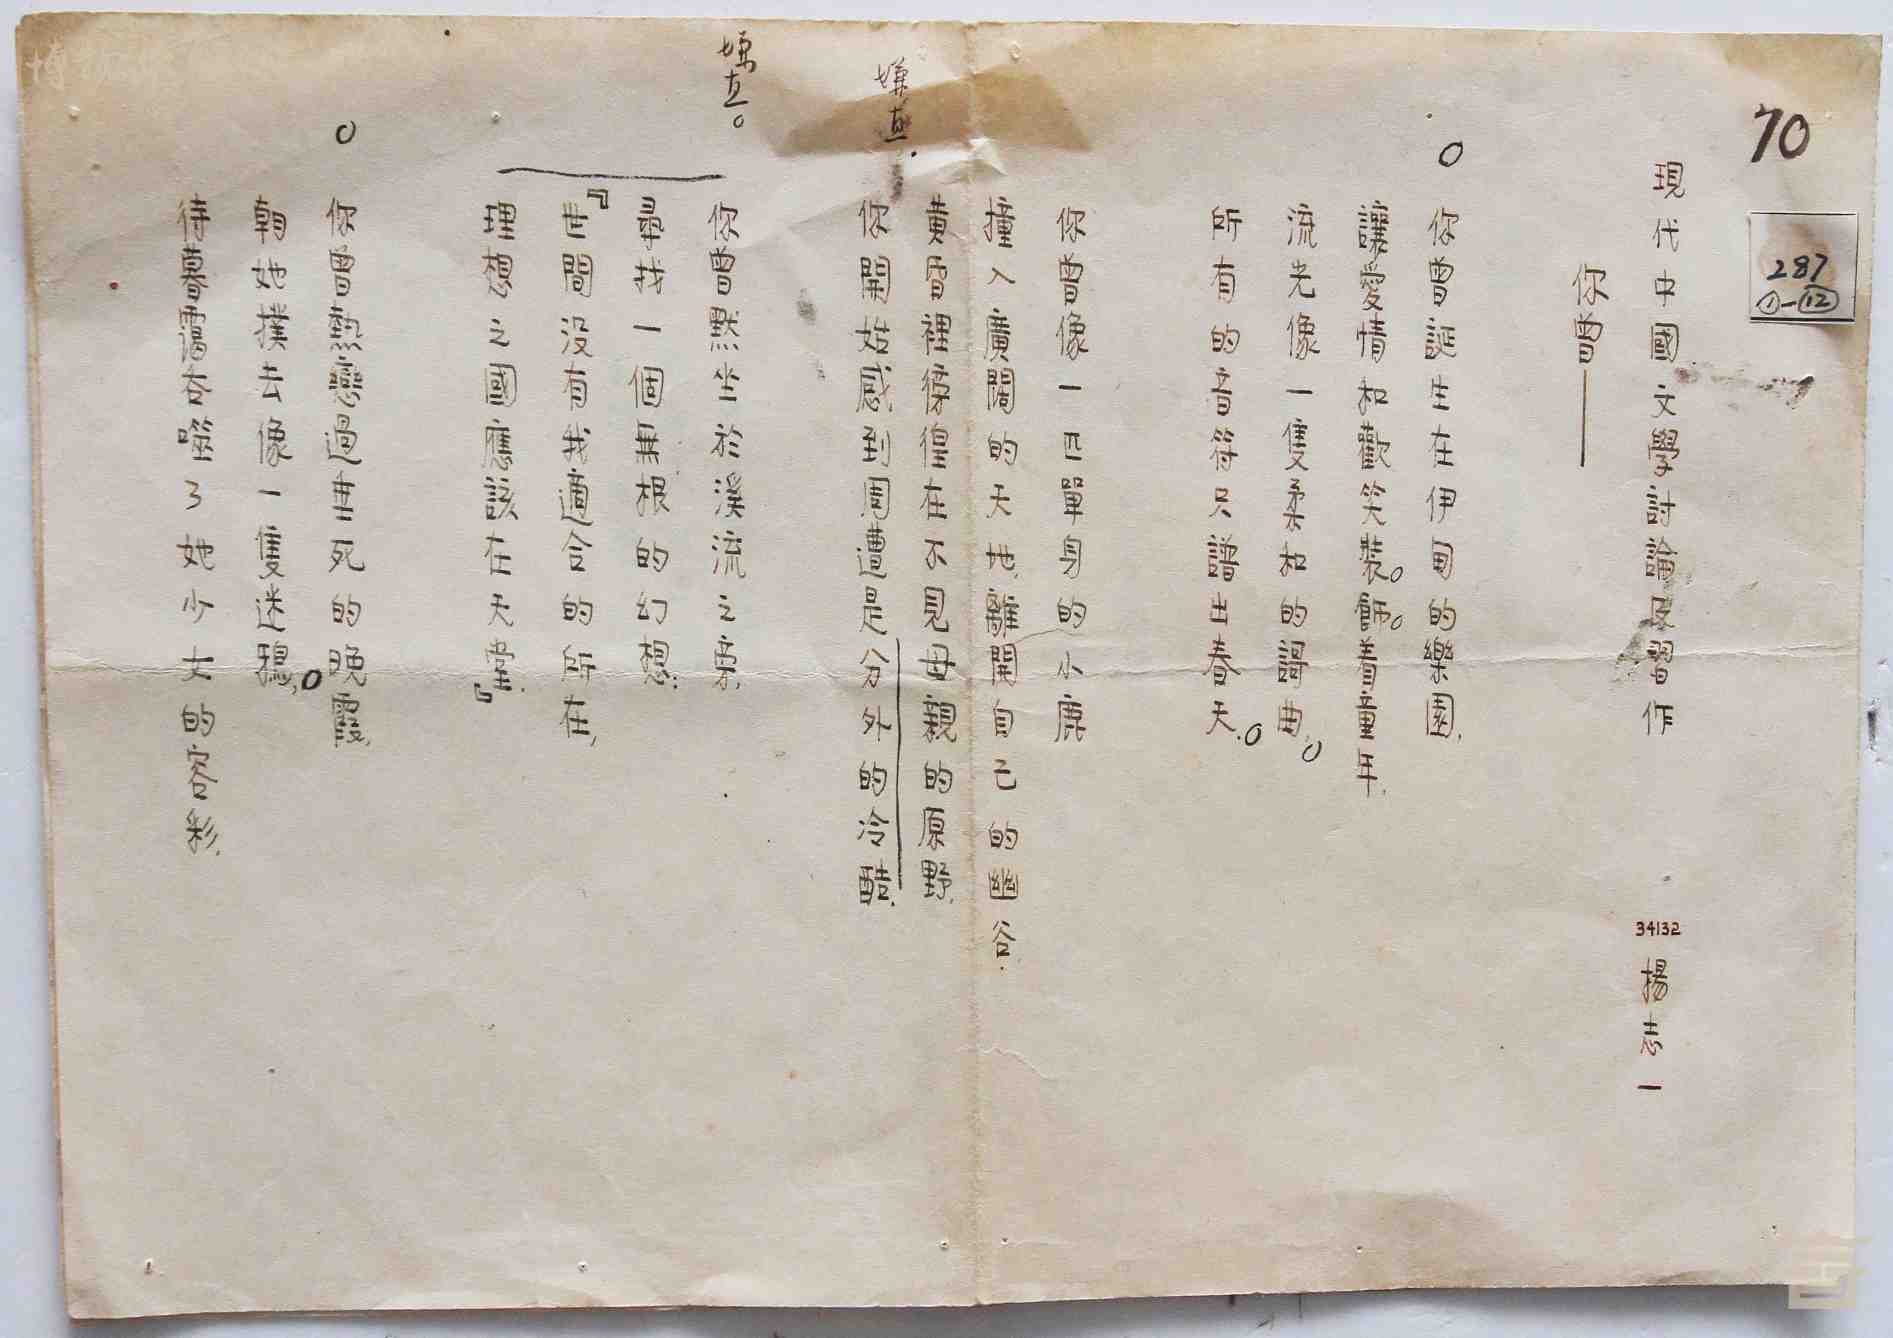 70
287
①—⑫
現代中國文學討論及習作
34132 楊志一
你曾——
你曾誕生在伊甸的樂園.
讓愛情和歡笑裝飾着童年.
流光像一隻柔和的謌曲,
所有的音符只譜出春天.
你曾像一匹單身的小鹿
撞入廣闊的天地,離開自己的幽谷.
黃昏裡徬徨在不見母親的原野.
你開始感到周遭是分外的冷酷.
嫌直.
你曾默坐於溪流之旁.
尋找一個無根的幻想:
『世間没有我適合的所在,
理想之國應該在天堂.』
嫌直。
你曾熱戀過垂死的晚霞,
朝她撲去像一隻迷鴉,
待暮靄吞噬了她少女的容彩.